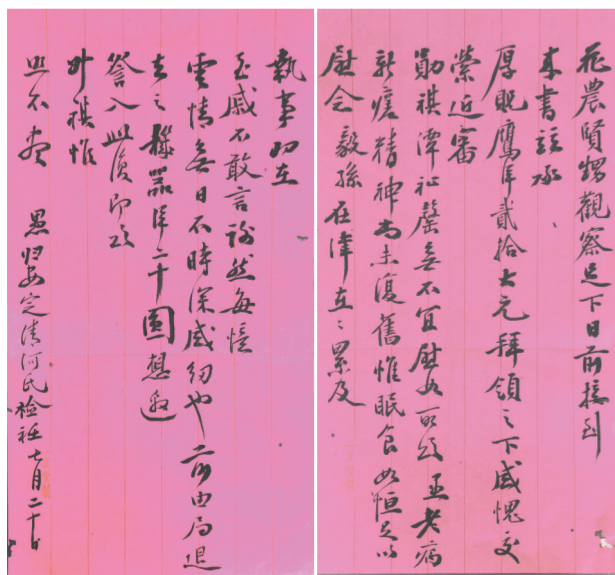 花農賢甥觀察足下日前接到
來書註承
厚貺鷹洋貳拾大元拜領之下感愧交
縈近審
勛祺潭祉罄無不宜慰如所頌 亚老病
新瘥精神尚未復舊惟眠食如恒足以
慰念 毅孫在津在在累及
執事切在
至戚不敢言謝然每憶
雲情無日不時深感紉也 前由局退
去之 器洋二十圓想邀
詧入 此復即頌
升祺惟
照不盡 愚 安定清河氏檢衽 七月二十日